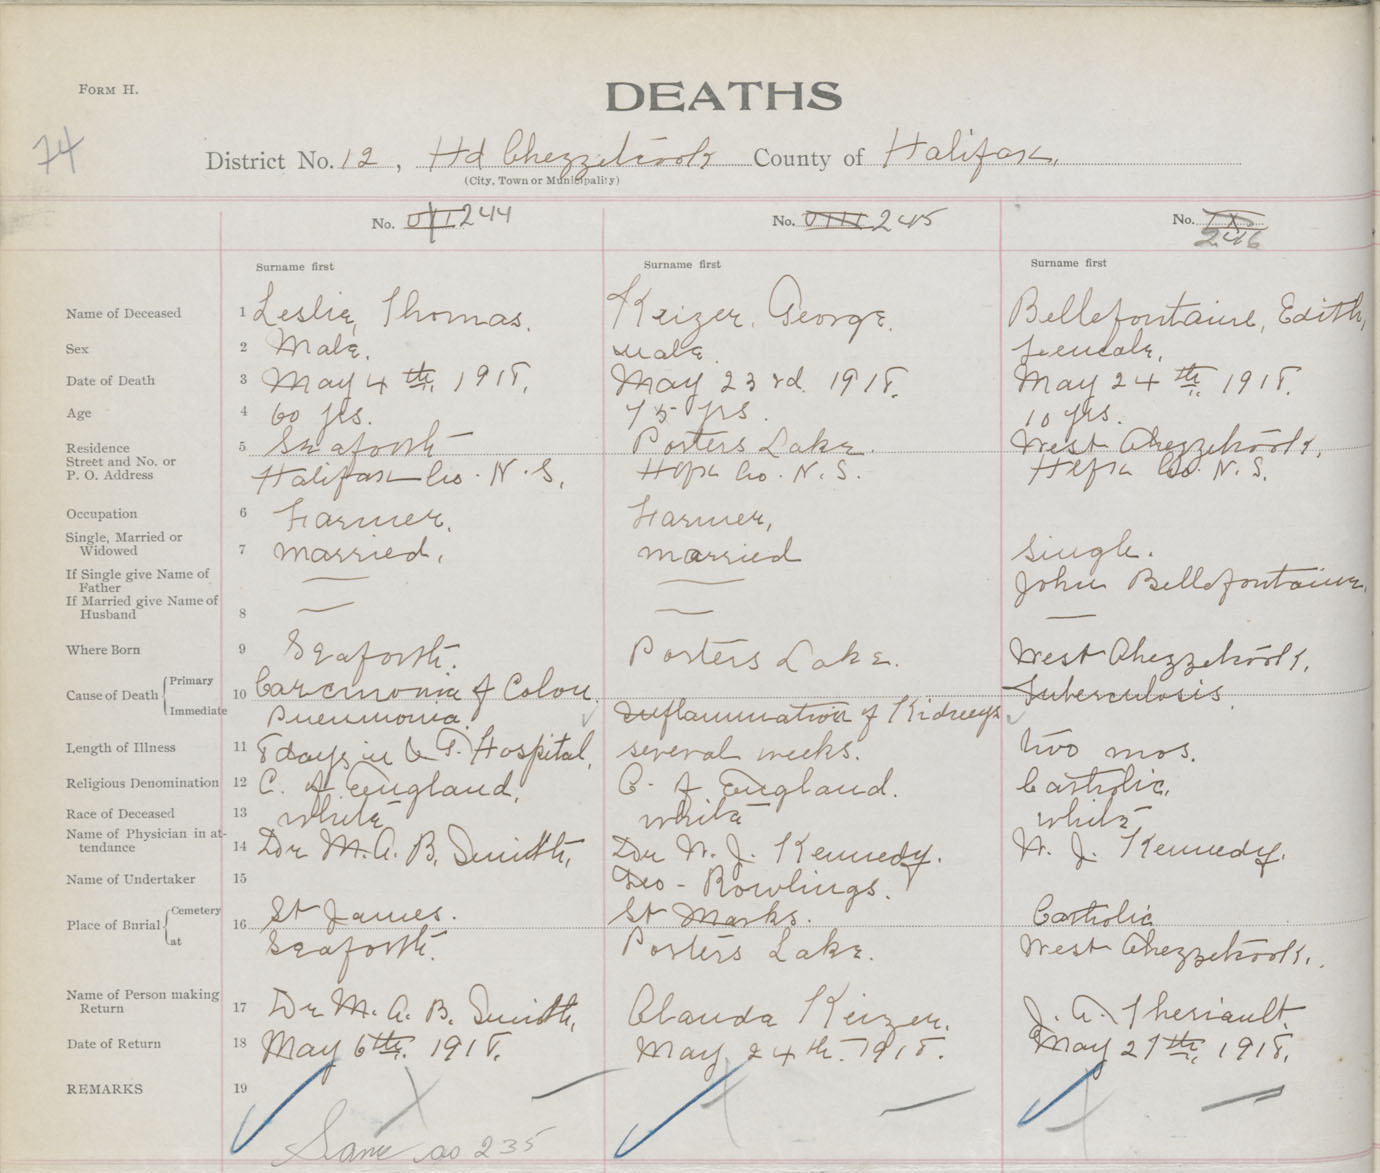 FORM H.
DEATHS
74
District No. 12, Hd Chezzetcook County of Halifax,
(City, Town or Municipality)
No. VII 244
No. VIII 245
No. IX 246
Surname first
Surname first
Surname first
Name of Deceased 1 Leslie, Thomas. Keizer, George. Bellefontaine, Edith,
Sex 2 Male. Male. Female.
Date of Death 3 May 4th, 1918. May 23rd 1918. May 24th, 1918.
Age 4 60 yrs. 75 yrs. 10 yrs.
Residence 5 Seaforth Porters Lake. West Chezzetcook,
Street and No. or
P. O. Address Halifax Co. N. S. Hfx Co. N. S. Hfx Co. N. S.
Occupation 6 Farmer. Farmer,
Single, Married or
Widowed 7 Married. Married Single.
If Single give Name of
Father — — John Bellefontaine.
If Married give Name of
Husband 8 — — —
Where Born 9 Seaforth. Porters Lake. West Chezzetcook.
Cause of Death { Primary 10 Carcinonia of Colon. Tuberculosis.
Immediate Pneumonia. Inflammation of Kidneys
Length of Illness 11 8 days in V. G. Hospital, several weeks. two mos.
Religious Denomination 12 C. of England. C. of England. Catholic.
Race of Deceased 13 White White White
Name of Physician in at-
tendance 14 Dr M. A. B. Smith, Dr N. J. Kennedy. N. J. Kennedy.
Name of Undertaker 15 Geo - Rowlings.
Place of Burial { Cemetery 16 St James. St Marks. Catholic
at Seaforth. Porters Lake. West Chezzetcook.
Name of Person making
Return 17 Dr M. A. B. Smith, Keizer. J. A. Theriault.
Date of Return 18 May 6th. 1918. May 24th. 1918. May 27th, 1918.
REMARKS 19
Same as 235